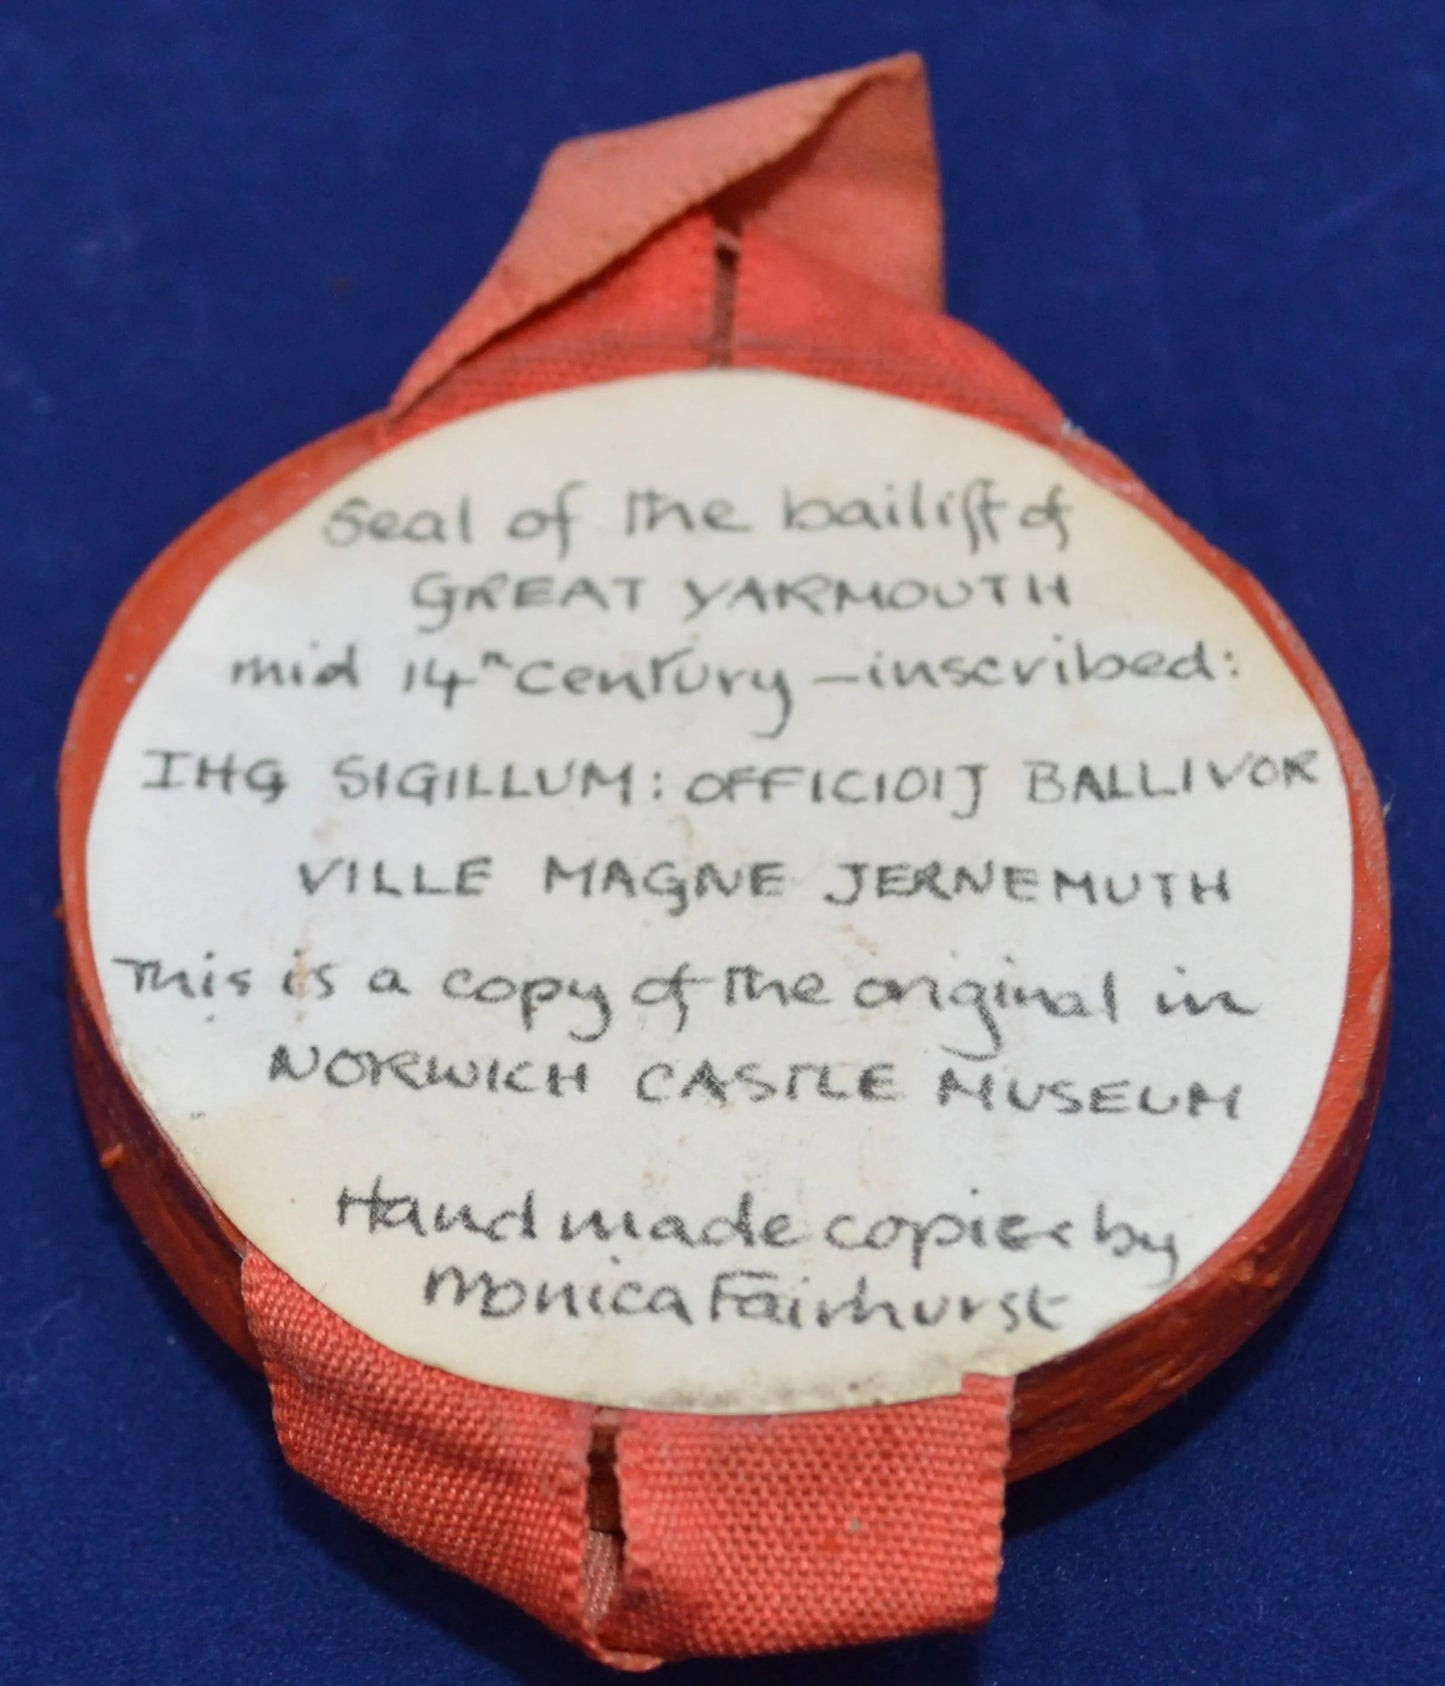 Seal of the bailiff of
GREAT YARMOUTH
mid 14th century – inscribed:
IHG SIGILLUM: OFFICIOIJ BALLIVOR
VILLE MAGNE JERNEMUTH
This is a copy of the original in
NORWICH CASTLE MUSEUM
Hand made copies by
Monica Fairhurst